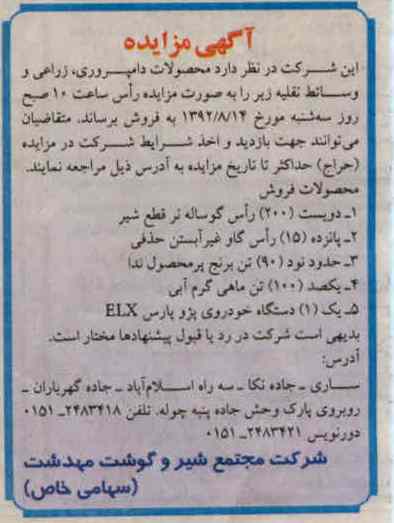 آگهی مزایده
این شرکت در نظر دارد محصولات دامپروری، زراعی و
وسائط نقلیه زیر را به صورت مزایده رأس ساعت ۱۰ صبح
روز سه‌شنبه مورخ ۱۳۹۲/۸/۱۴ به فروش برساند. متقاضیان
می‌توانند جهت بازدید و اخذ شرایط شرکت در مزایده
(حراج) حداکثر تا تاریخ مزایده به آدرس ذیل مراجعه نمایند.
محصولات فروش
۱ـ دویست (۲۰۰) رأس گوساله نر قطع شیر
۲ـ پانزده (۱۵) رأس گاو غیرآبستن حذفی
۳ـ حدود نود (۹۰) تن برنج پرمحصول ندا
۴ـ یکصد (۱۰۰) تن ماهی گرم آبی
۵ـ یک (۱) دستگاه خودروی پژو پارس ELX
بدیهی است شرکت در رد یا قبول پیشنهادها مختار است.
آدرس:
ساری ـ جاده نکا ـ سه راه اسلام‌آباد ـ جاده گهرباران ـ
روبروی پارک وحش جاده پنبه چوله. تلفن ۲۴۸۳۴۱۸ـ ۰۱۵۱
دورنویس ۲۴۸۳۴۲۱ـ ۰۱۵۱
شرکت مجتمع شیر و گوشت مهدشت
(سهامی خاص)